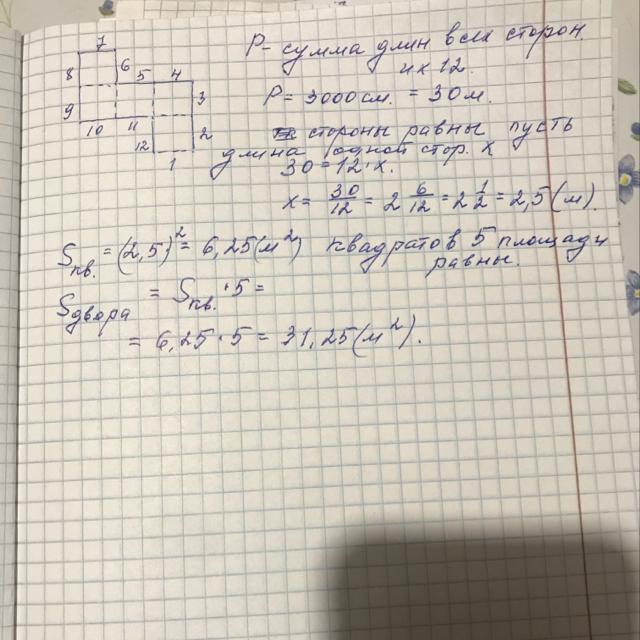 7
8
6
5
4
3
9
10
11
2
12
1
P- сумма длин всех сторон
их 12.
P = 3000 см. = 30 м.
стороны равны пусть
длина одной стор. x
30 = 12·x.
x = 30/12 = 2 6/12 = 2 1/2 = 2,5 (м).
Sкв. = (2,5)² = 6,25 (м²) квадратов 5 площади
равны.
Sдвора = Sкв. · 5 =
= 6,25 · 5 = 31,25 (м²).